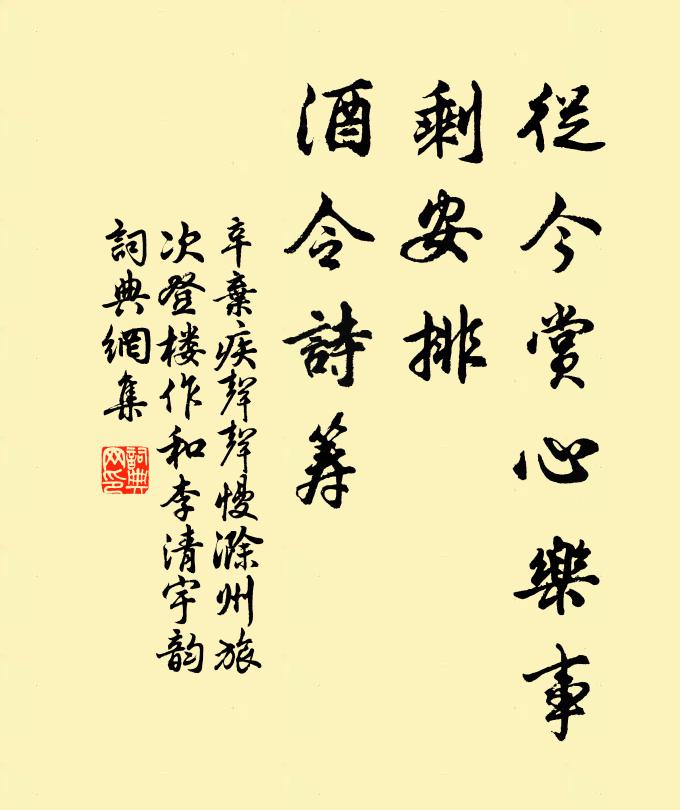 從今賞心樂事
剩安排
酒令詩筹
辛棄疾聲聲慢滁州旅
次登楼作和李清宇韵
詞典網集
詞典
网印